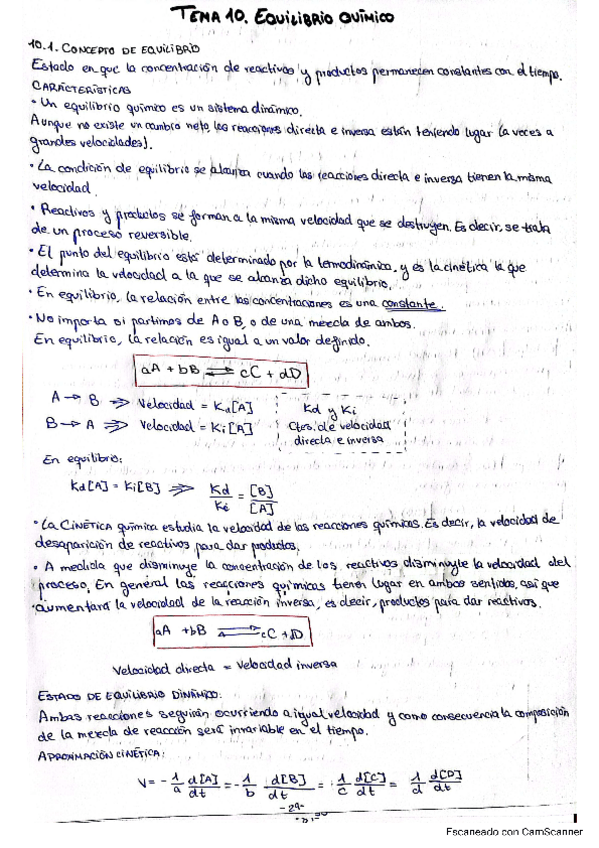 TEMA 10. EQUILIBRIO QUÍMICO
10.1. CONCEPTO DE EQUILIBRIO
Estado en que la concentración de reactivos y productos permanecen constantes con el tiempo.
CARACTERÍSTICAS
• Un equilibrio químico es un sistema dinámico.
Aunque no existe un cambio neto, las reacciones directa e inversa están teniendo lugar (a veces a
grandes velocidades).
• La condición de equilibrio se alcanza cuando las reacciones directa e inversa tienen la misma
velocidad.
• Reactivos y productos se forman a la misma velocidad que se destruyen. Es decir, se trata
de un proceso reversible.
• El punto del equilibrio está determinado por la termodinámica, y es la cinética la que
determina la velocidad a la que se alcanza dicho equilibrio.
• En equilibrio, la relación entre las concentraciones es una constante.
• No importa si partimos de A o B, o de una mezcla de ambos.
En equilibrio, la relación es igual a un valor definido.
aA + bB ⇌ cC + dD
A → B ⇒ Velocidad = Kd[A]
B → A ⇒ Velocidad = Ki[A]
Kd y Ki
Ctes. de velocidad
directa e inversa
En equilibrio:
Kd[A] = Ki[B] ⇒ Kd/Ki = [B]/[A]
• La CINÉTICA química estudia la velocidad de las reacciones químicas. Es decir, la velocidad de
desaparición de reactivos para dar productos.
• A medida que disminuye la concentración de los reactivos disminuye la velocidad del
proceso. En general las reacciones químicas tienen lugar en ambos sentidos, así que
aumentará la velocidad de la reacción inversa, es decir, productos para dar reactivos.
aA + bB ⇌ cC + dD
Velocidad directa = Velocidad inversa
ESTADO DE EQUILIBRIO DINÁMICO:
Ambas reacciones seguirán ocurriendo a igual velocidad y como consecuencia la composición
de la mezcla de reacción será invariable en el tiempo.
APROXIMACIÓN CINÉTICA:
V = - 1/a d[A]/dt = - 1/b d[B]/dt = 1/c d[C]/dt = 1/d d[D]/dt
-29-
Escaneado con CamScanner